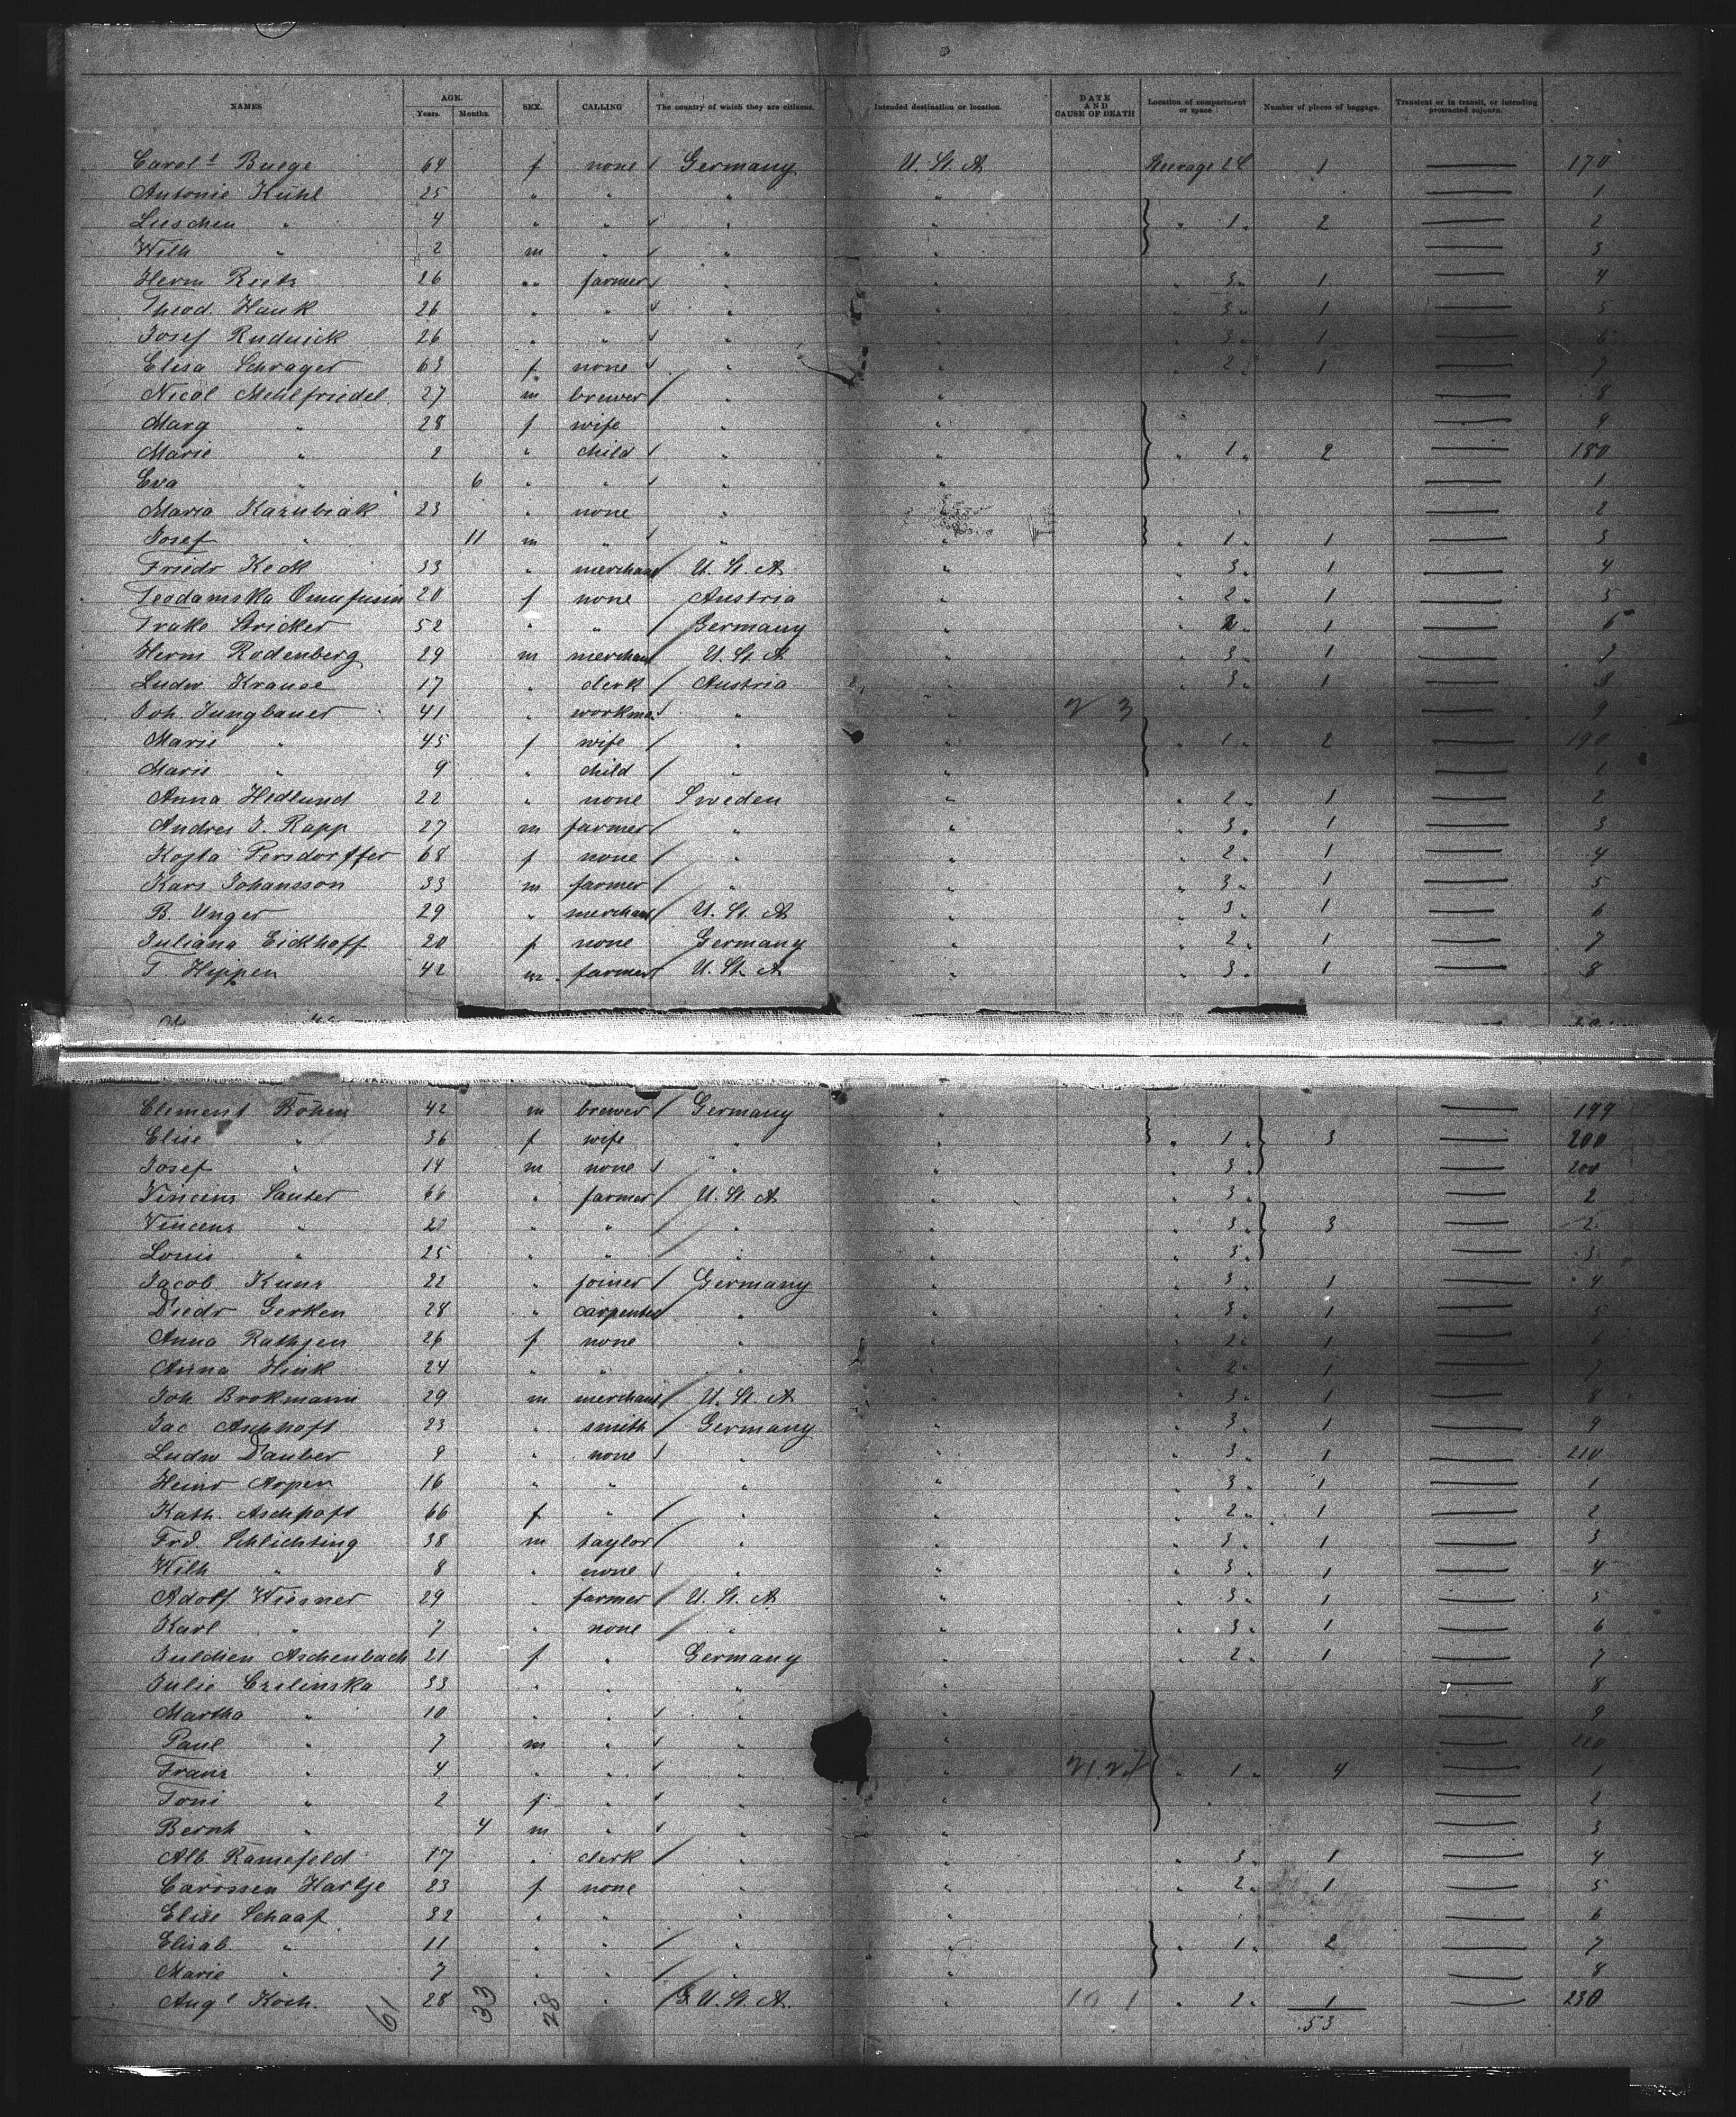 NAMES AGE. Years. Months. SEX. CALLING The country of which they are citizens. Intended destination or location. DATE AND CAUSE OF DEATH Location of compartment or space Number of pieces of baggage. Transient or in transit, or intending protracted sojourn.
Carol^e Buege 64 f none / Germany U. St. A Steerage 2 C 1 — 170
Antonie Kühl 25 " " " " — 1
Lieschen " 4 " " / " " " 1 " 2 — 2
Wilh " 2 m " / " " — 3
Herm Reetz 26 " farmer / " " " 3 " 1 — 4
Theod. Hauk 26 " " / " " " 3 " 1 — 5
Josef Rudnick 26 " " / " " " 3 " 1 — 6
Elisa Schrager 63 f none / " " " 2 " 1 — 7
Nicol Mehlfriedel 27 m brewer / " " — 8
Marg " 28 f wife " " — 9
Marie " 2 " child / " " " 1 " 2 — 180
Eva " 6 " " / " " — 1
Maria Kazubiak 23 " none " — 2
Josef " 11 m " / " " " 1 " 1 — 3
Friedr Keck 33 " merchant / U. St. A " " 3 " 1 — 4
Teodamska 20 f none Austria " " 2 " 1 — 5
Trake Stricker 52 " " / Germany " " 2 " 1 — 6
Herm Rodenberg 29 m merchant U. St. A " " 3 " 1 — 7
Ludw Krause 17 " clerk / Austria " " 3 " 1 — 8
Joh. Jungbauer 41 " workman / " " 2 3 — 9
Marie " 45 f wife / " " " 1 " 2 — 190
Marie " 9 " child / " " — 1
Anna Hedlund 22 " none Sweden " " 2 " 1 — 2
Andres J. Rapp 27 m farmer / " " " 3 " 1 — 3
Kojta Persdorffer 68 f none / " " " 2 " 1 — 4
Kars Johansson 33 m farmer / " " " 3 " 1 — 5
B. Unger 29 " merchant / U. St. A " " 3 " 1 — 6
Juliana Eickhoff 20 f none Germany " " 2 " 1 — 7
T. Hippen 42 m farmer / U. St. A " " 3 " 1 — 8
Clement Böhm 42 m brewer / Germany " — 199
Elise " 36 f wife " " " 1 " 3 — 200
Josef " 14 m none / " " " 3 " — 200
Vincenz Sauter 66 " farmer / U. St. A " " 3 " — 2
Vincenz " 20 " " / " " " 3 " 3 — 2
Louis " 25 " " / " " " 3 " — 3
Jacob Kunz 22 " joiner / Germany " " 3 " 1 — 4
Diedr Gerken 28 " carpenter / " " " 3 " 1 — 5
Anna Rathjen 26 f none " " " 2 " 1 — 6
Anna Hink 24 " " " " " 2 " 1 — 7
Joh Brokmann 29 m merchant / U. St. A " " 3 " 1 — 8
Jac Aschhoft 23 " smith / Germany " " 3 " 1 — 9
Ludw Dauber 9 " none / " " " 3 " 1 — 210
Heinr Arpen 16 " " " " " 3 " 1 — 1
Kath. Aschhoft 66 f " / " " " 2 " 1 — 2
Frd. Schlichting 38 m taylor / " " " 3 " 1 — 3
Wilh " 8 " none / " " " 3 " 1 — 4
Adolf Wiesner 29 " farmer / U. St. A " " 3 " 1 — 5
Karl " 7 " none / " " " 3 " 1 — 6
Juldien Aschenbach 21 f " Germany " " 2 " 1 — 7
Julie Czelinska 33 " " " " — 8
Martha " 10 " " / " " — 9
Paul " 7 m " / " " — 220
Franz " 4 " " / " " " 1 " 4 — 1
Toni " 2 f " / " " — 2
Bernh " 4 m " / " " — 3
Alb Ramefeld 17 " clerk / " " " 3 " 1 — 4
Carossen Hartje 23 f none " " " 2 " 1 — 5
Elise Schaaf 32 " " " " — 6
Elisab " 11 " " / " " " 1 " 2 — 7
Marie " 7 " " / " " — 8
Aug^e Koch. 28 " " / U. St. A. " 10 1 " 2 " 1 — 230
61 33 28 53